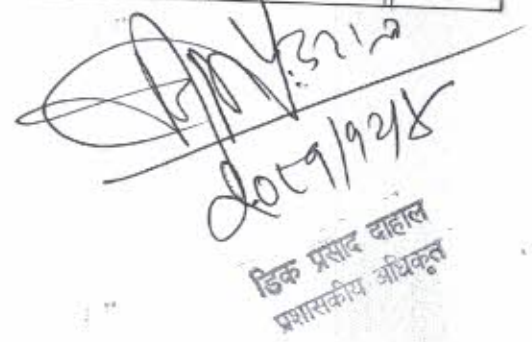 २०८१/१२/४
डिक प्रसाद दाहाल
प्रशासकीय अधिकृत